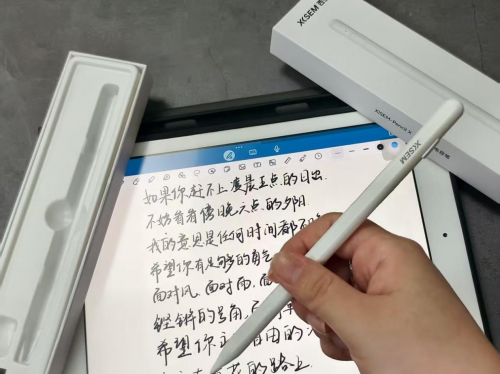 XISEM 西
XISEM Pencil X
XISEM
如果你赶不上凌晨五点的日出
不妨看看傍晚六点的夕阳
我的意思是任何时间都不
希望你有足够的勇气
面对风，面对雨，面
铿锵的号角，
希望你 自由的
的路上